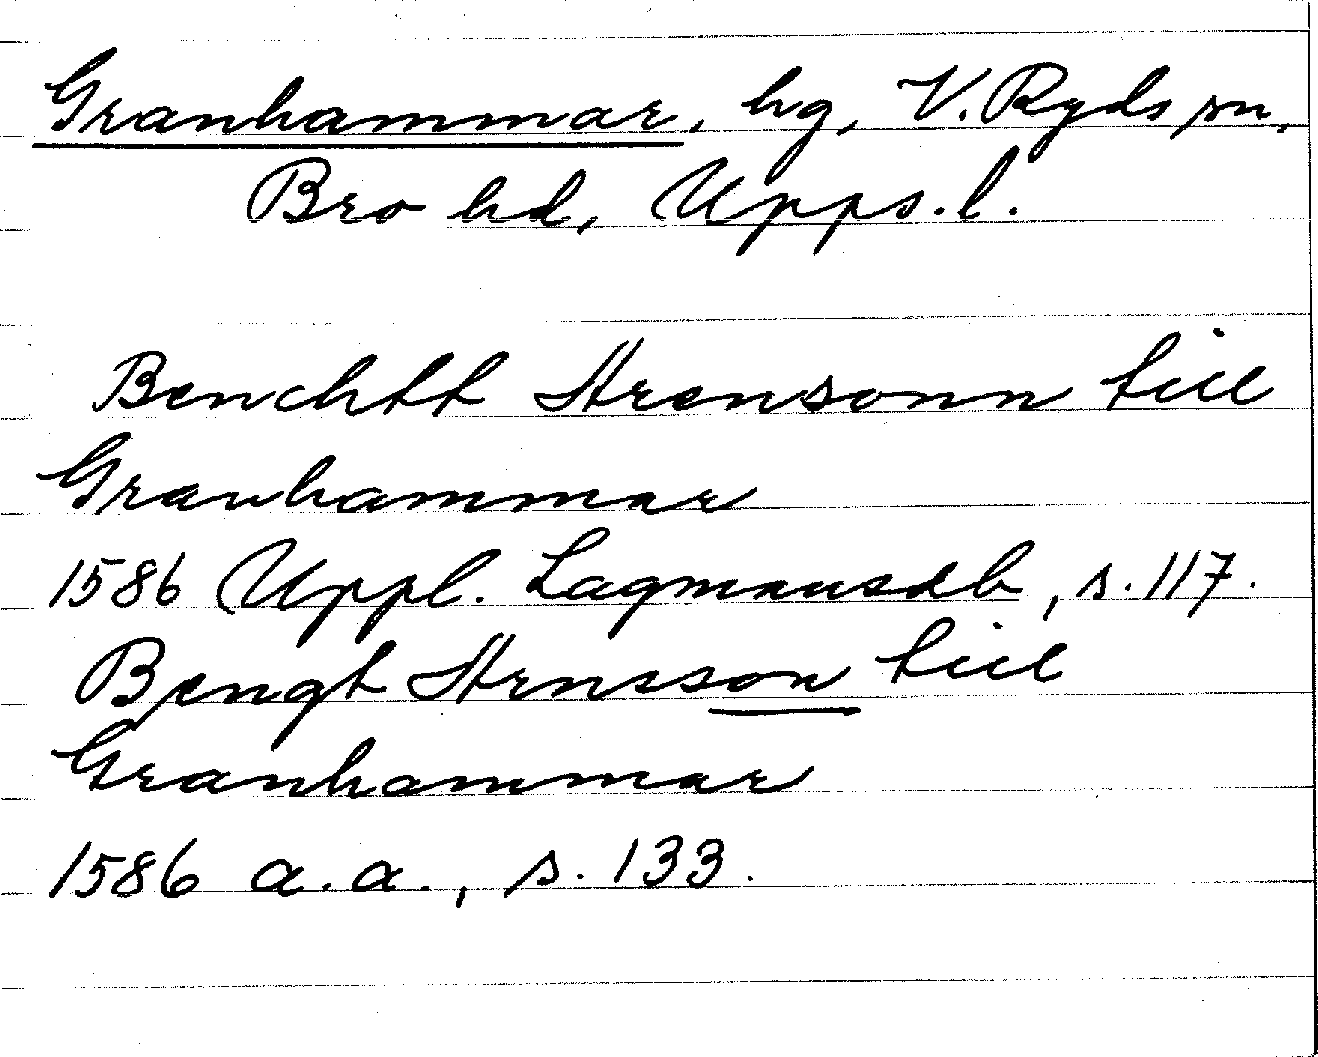 Granhammar, hg, V. Ryds sn,
Bro hd, Upps.l.
Benchtt Arensonn till
Granhammar
1586 Uppl. Lagmansdb, s. 117.
Bengt Arnsson till
Granhammar
1586 a.a., s. 133.